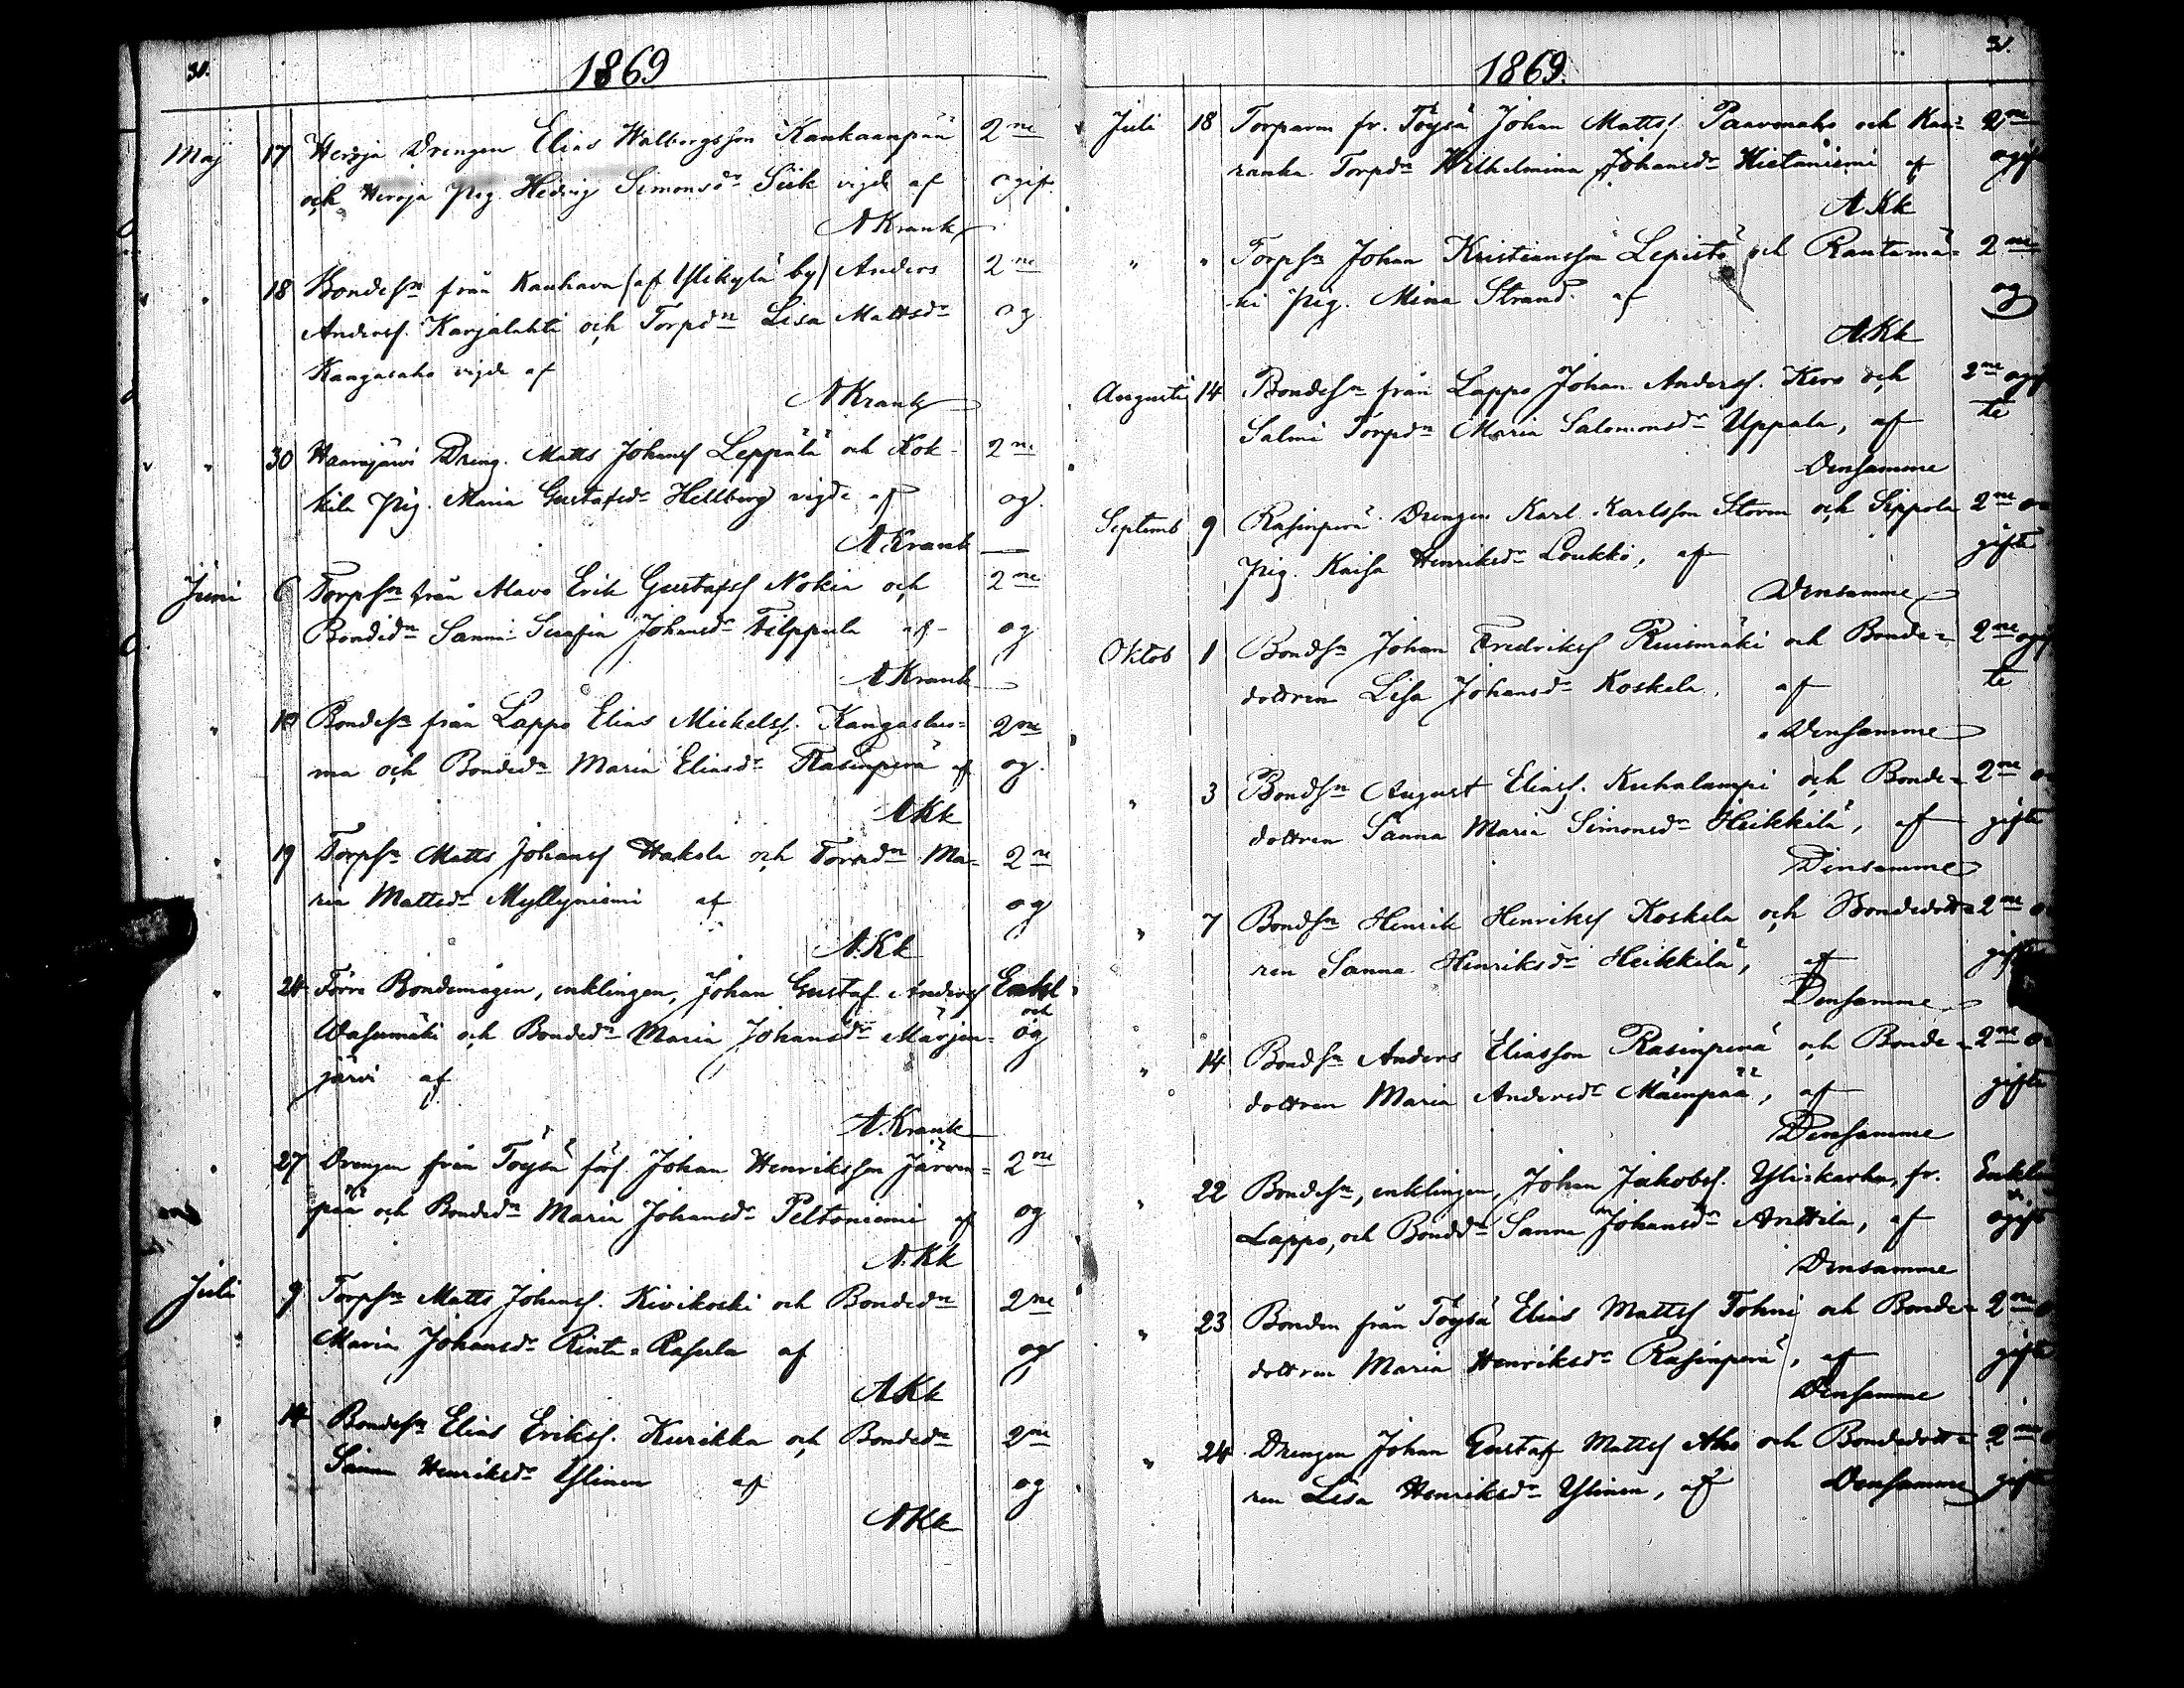 31.
1869
Maj 17 Herrja Drengen Elias Walborgsson Kankaanpää 2ne
och Herrja pig. Hedvig Simonsdr Siik vigde af ogift.
A Krank
" 18 Bondesn från Kauhava (af Ylikylä by) Anders 2ne
Andersf. Karjalahti och Torpdn Lisa Mattsdr og
Kangasaho vigde af
A Krank
" 30 Haarajärvi Dreng. Matts Johansf Leppälä och Kok- 2ne
kila pig. Maria Gustafsdr Hellberg vigde af og.
A Krank
Juni 6 Torpsn från Alavo Erik Gustafsf Nokia och 2ne
Bondedn Sanna Serafia Johansdr Filppula af og
A Krank
" Bondesn från Lappo Elias Mickelsf. Kangasluo= 2ne
ma och Bondedn Maria Eliasdr Rasinperä af og.
A Kk
" 19 Torpsn Matts Johansf Hakola och Torpdn Ma= 2ne
ria Mattsdr Myllyniemi af og
A. Kk
" 24 Förre Bondemågen, enklingen, Johan Gustaf Andersf Enkl.
och
Wasumäki och Bondedn Maria Johansdr Märjen= og
järvi af
A. Krank
" 27 Drengen från Töysä förs. Johan Henriksson Järven= 2ne
pää och Bondedn Maria Johansdr Peltoniemi af og
A. Kk
Juli 9 Torpsn Matts Johansf. Kivikoski och Bondedn 2ne
Maria Johansdr Rinta=Rasula af og
A Kk
" 14 Bondesn Elias Eriksf. Kurikka och Bondedn 2ne
Sanna Henriksdr Ylinen af og
A Kk
31.
1869.
Juli 18 Torparen fr. Töysä Johan Mattsf. Paavonaho och Kaa= 2ne
ranka Torpdn Wilhelmina Johansdr Hietaniemi af ogif
A Kk
" " Torpsn Johan Kristiansson Lepistö och Rantamä= 2ne
ki pig. Mina Strand. af og
A. Kk
Augusti 14 Bondesn från Lappo Johan Andersf. Kero och 2ne ogif
Salmi Torpdn Maria Salomonsdr Uppala, af te
Densamme
Septemb 9 Rasinperä Drengen Karl Karlsson Storm och Sippola 2ne o=
pig. Kaisa Henriksdr Loukko, af gifte
Densamme
Oktob 1 Bondsn Johan Fredriksf Ruismäki och Bonde= 2ne ogif
dottren Lisa Johansdr Koskela, af te
Densamme
" 3 Bondsn August Eliasf. Kuhalampi och Bonde= 2ne o=
dottren Sanna Maria Simonsdr Heikkilä, af gifte
Densamme
" 7 Bondsn Henrik Henriksf Koskela och Bondedott= 2ne o
ren Sanna Henriksdr Heikkilä, af gifte
Densamme
" 14 Bondsn Anders Eliasson Rasinperä och Bonde= 2ne o=
dottren Maria Andersdr Mäenpää, af gifte
Densamme
" 22 Bondesn, enklingen, Johan Jakobsf. Yliskarhu, fr. Enkl
Lappo, och Bondedn Sanna Johansdr Anttila, af ogift
Densamme
" 23 Bonden från Töysä Elias Mattsf Tohni och Bonde= 2ne o
dottren Maria Henriksdr Rasinperä, af gifte
Densamme
" 24 Drengen Johan Gustaf Mattsf Aho och Bondedott= 2ne o
ren Lisa Henriksdr Ylinen, af Densamme gift